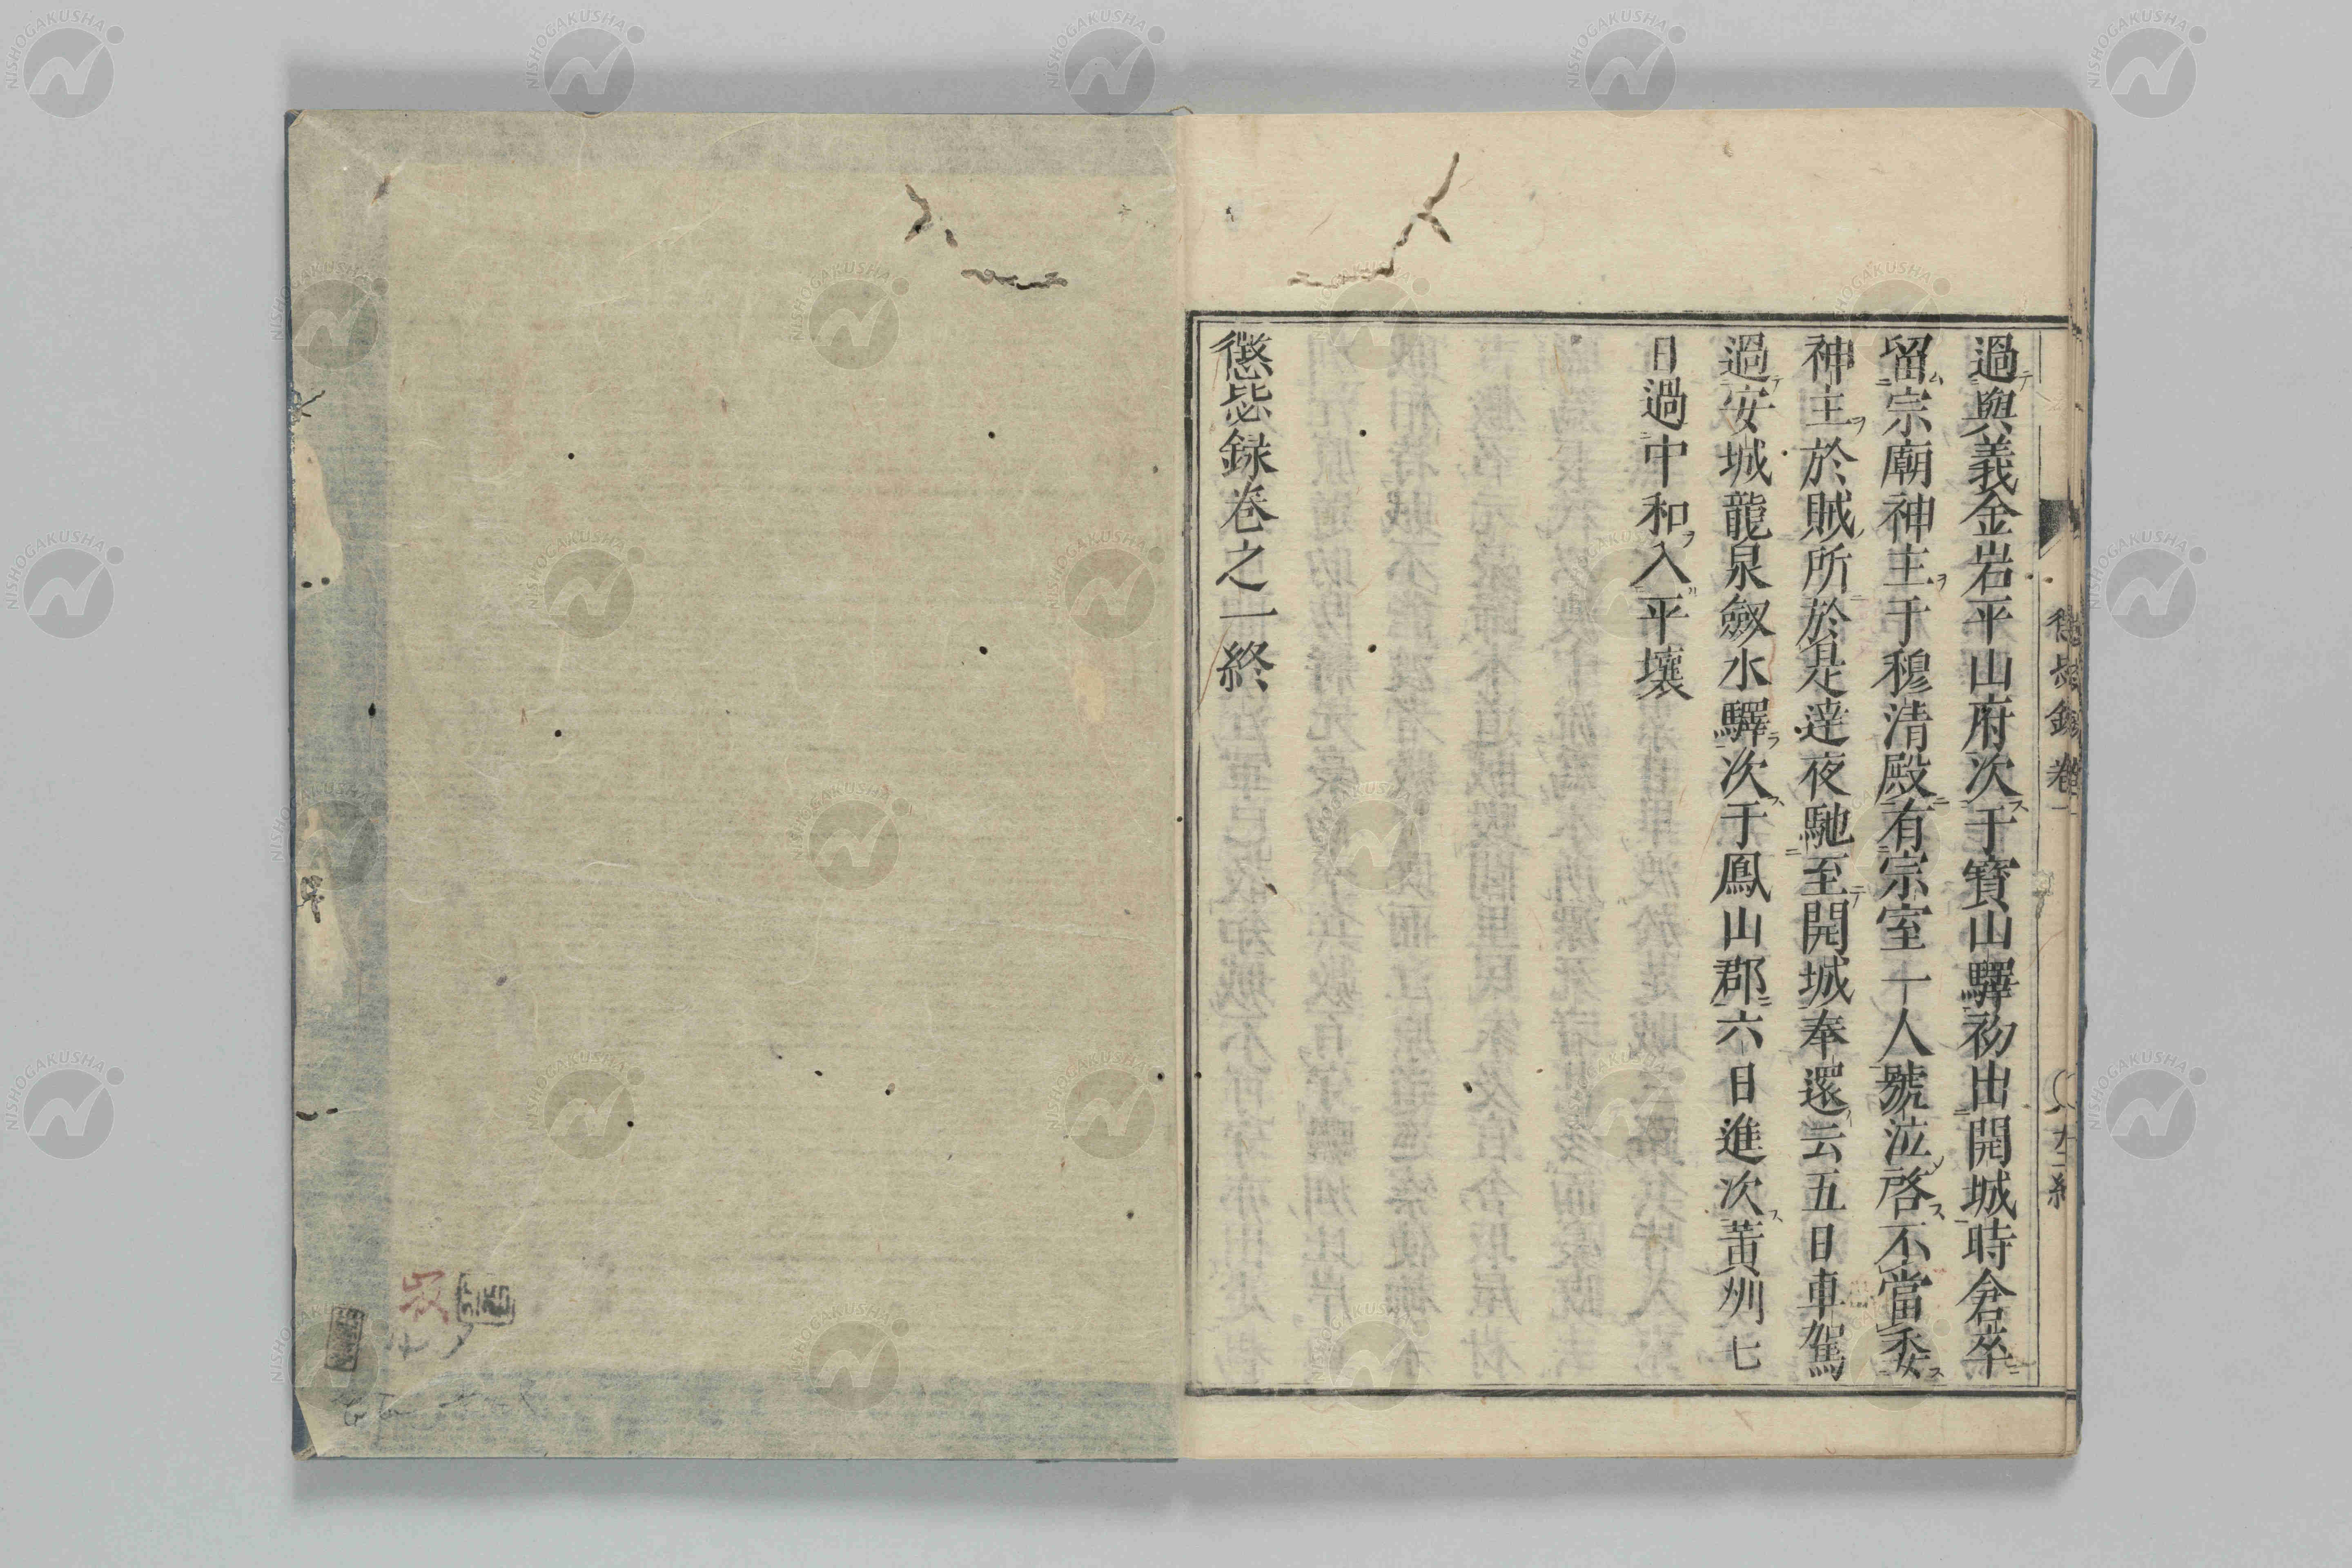 過興義金岩平山府次于寶山驛初出開城時倉卒
留宗廟神主于穆清殿有宗室一人號泣啓不當委
神主於賊所於是達夜馳至開城奉還云五日車駕
過安城龍泉劔水驛次于鳳山郡六日進次黃州七
日過中和入平壤
懲毖録卷之一終